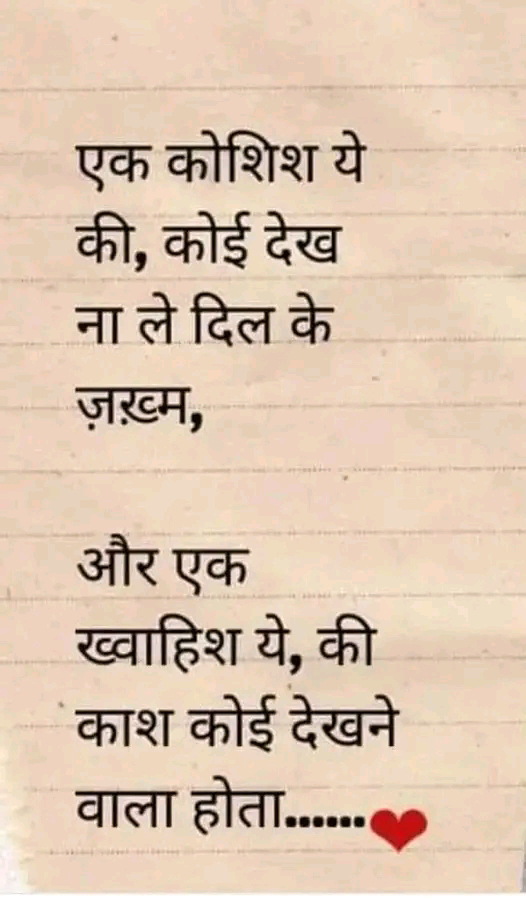 एक कोशिश ये
की, कोई देख
ना ले दिल के
ज़ख़्म,
और एक
ख्वाहिश ये, की
काश कोई देखने
वाला होता......❤